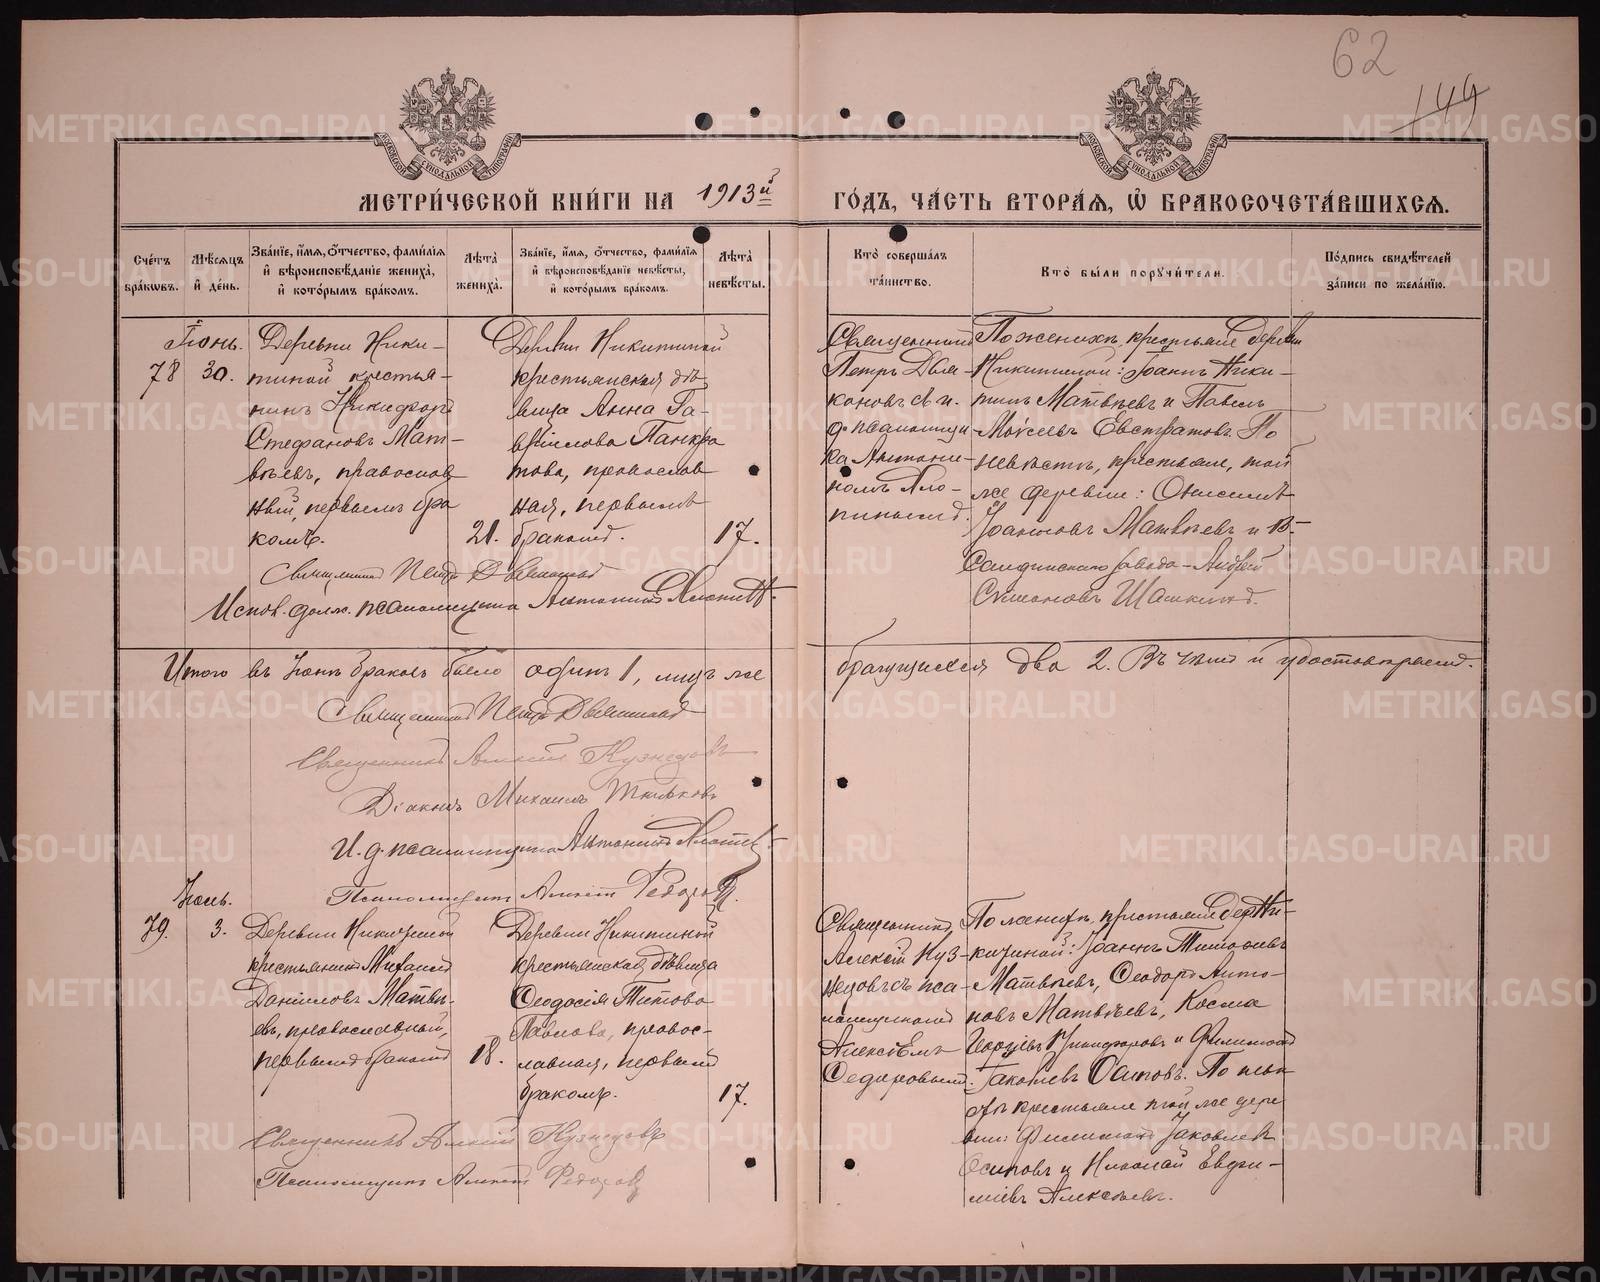 62
149
МОСКОВСКОЙ СѴНОДАЛЬНОЙ ТИПОГРАФІИ
МОСКОВСКОЙ СѴНОДАЛЬНОЙ ТИПОГРАФІИ
МЕТРИ́ЧЕСКОЙ КНИ́ГИ НА 1913й ГО́ДЪ, ЧА́СТЬ ВТОРА́Я, Ѡ БРАКОСОЧЕТА́ВШИХСЯ.
Сче́тъ бра́кѡвъ.
Мѣ́сяцъ и́ де́нь.
Зва́нїе, и́мя, о́тчество, фами́лїя и́ вѣроисповѣ́данїе жениха̀, и́ кото́рымъ бра́комъ.
Лѣ́та жениха̀.
Зва́нїе, и́мя, о́тчество, фами́лїя и́ вѣроисповѣ́данїе невѣ́сты, и́ кото́рымъ бра́комъ.
Лѣ́та невѣ́сты.
Кто̀ соверша́лъ та́инство.
Кто̀ бы́ли поручи́тели.
По́дпись свидѣ́телей за́писи по жела́нїю.
78
Іюнь.
30.
Деревни Ники-
тиной крестья-
нинъ Никифоръ
Стефановъ Мат-
вѣевъ, православ
ный, первымъ бра
комъ.
21.
Деревни Никитиной
крестьянская дѣ
вица Анна Га-
вріилова Панкра
това, православ
ная, первымъ
бракомъ.
17.
Священникъ
Петръ Двин-
яниновъ съ и.
д. псаломщи
ка Антоні-
номъ
По женихѣ, крестьяне деревни
Никитиной: Іоаннъ Ники-
тинъ Матвѣевъ и Павелъ
Моѵсеевъ Евстратовъ. По
невѣстѣ, крестьяне, той
же деревни: Онисимъ
Іоанновъ Матвѣевъ и В-
Салдинскаго завода - Андрей
Симоновъ Шашкинъ.
Священникъ Петръ
Испов. долж. псаломщика Антонинъ
Итого въ Іюнѣ браковъ было одинъ 1, лицъ же
брачущихся два 2. Въ чемъ и удостовѣряемъ.
Священникъ Петръ
Священникъ Алексій Кузнецовъ
Діаконъ Михаилъ
И. д. псаломщика Антонинъ
Псаломщикъ Алексѣй Федоровъ
79.
Іюль.
3.
Деревни Никитиной
крестьянинъ Михаилъ
Даниловъ Матвѣ-
евъ, православный,
первымъ бракомъ
18.
Деревни Никитиной
крестьянская дѣвица
Ѳеодосія Титова
Павлова, правос-
лавная, первымъ
бракомъ.
17.
Священникъ
Алексій Куз-
нецовъ съ пса-
ломщикомъ
Алексѣемъ
Федоровымъ.
По женихѣ, крестьяне дер. Ни-
китиной: Іоаннъ Тимофеевъ
Матвѣевъ, Ѳеодоръ Анто-
новъ Матвѣевъ, Косма
Георгіевъ Никифоровъ и Филимонъ
Іаковлевъ Осиповъ. По невѣ
стѣ крестьяне той же дере
вни: Филимонъ Іаковлевъ
Осиповъ и Николай Евфи-
міевъ Алексѣевъ.
Священникъ Алексій Кузнецовъ
Псаломщикъ Алексѣй Федоровъ
METRIKI.GASO-URAL.RU